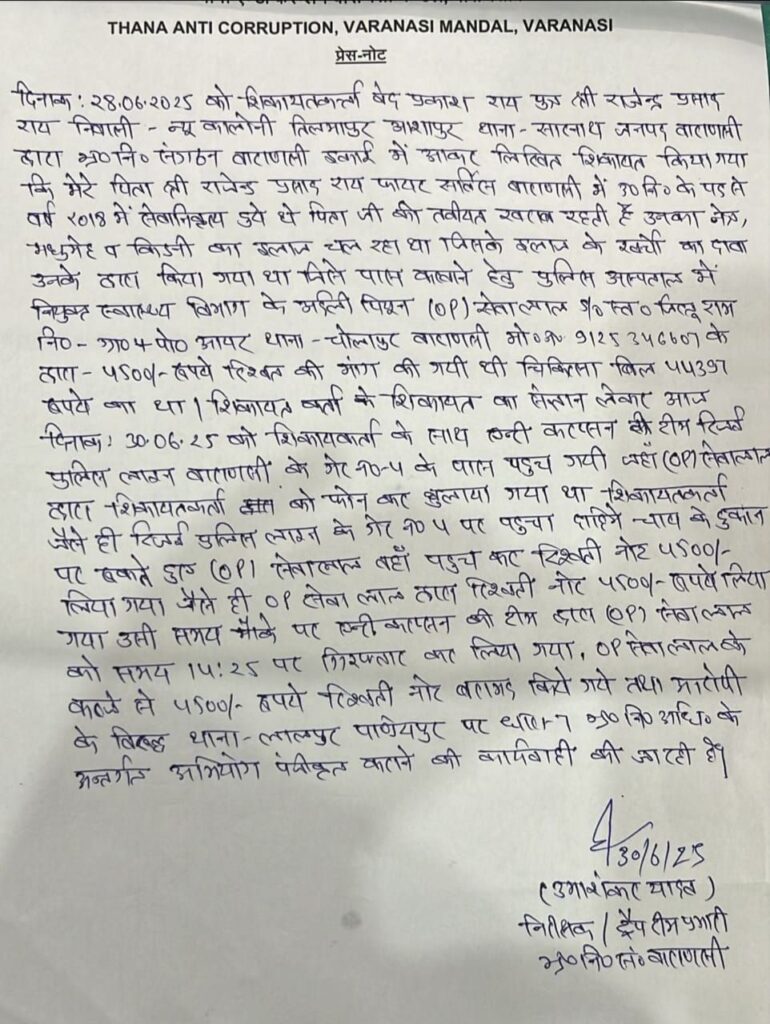 THANA ANTI CORRUPTION, VARANASI MANDAL, VARANASI
प्रेस-नोट
दिनाक: 28.06.2025 को शिकायतकर्ता वेद प्रकाश राय पुत्र श्री राजेन्द्र प्रसाद
राय निवासी - न्यू कालोनी तिलमापुर आशापुर थाना - सारनाथ जनपद वाराणसी
द्वारा भ्र०नि० संगठन वाराणसी इकाई में आकर लिखित शिकायत किया गया
कि मेरे पिता श्री राजेन्द्र प्रसाद राय फायर सर्विस वाराणसी में उ०नि० के पद से
वर्ष 2018 में सेवानिवृत्त हुये थे पिता जी की तबीयत खराब रहती है उनका नेत्र,
मधुमेह व किडनी का इलाज चल रहा था जिसके इलाज के खर्चो का दावा
उनके द्वारा किया गया था जिसे पास कराने हेतु पुलिस अस्पताल में
नियुक्त स्वास्थ्य विभाग के अर्दली पियून (OP) सेवालाल S/o स्व० राम
नि०- ग्रा० व पो० आयर थाना - चोलापुर वाराणसी मो०न० 9125346607 के
द्वारा - 4500/- रुपये रिश्वत की मांग की गयी थी चिकित्सा बिल 44397
रुपये का था। शिकायत कर्ता के शिकायत का संज्ञान लेकर आज
दिनाक: 30.06.25 को शिकायकर्ता के साथ एन्टी करप्सन की टीम रिजर्व
पुलिस लाइन वाराणसी के गेट न०-4 के पास पहुच गयी जहाँ (OP) सेवालाल
द्वारा शिकायतकर्ता को फोन कर बुलाया गया था शिकायतकर्ता
जैसे ही रिजर्व पुलिस लाइन के गेट न० 4 पर पहुचा चाय के दुकान
पर (OP) सेवालाल वहाँ पहुच कर रिश्वती नोट 4500/-
लिया गया जैसे ही OP सेवा लाल द्वारा रिश्वती नोट 4500/- रुपये लिया
गया उसी समय मौके पर एन्टी करप्सन की टीम द्वारा (OP) सेवालाल
को समय 14:25 पर गिरफ्तार कर लिया गया, OP सेवालाल के
कब्जे से 4500/- रुपये रिश्वती नोट बरामद किये गये तथा आरोपी
के विरुद्ध थाना - लालपुर पाण्डेयपुर पर धारा 7 भ्र०नि० अधि० के
अन्तर्गत अभियोग पंजीकृत कराने की कार्यवाही की जा रही है।
30/6/25
(उमाशंकर यादव)
निरीक्षक / ट्रैप टीम प्रभारी
भ्र०नि०सं० वाराणसी